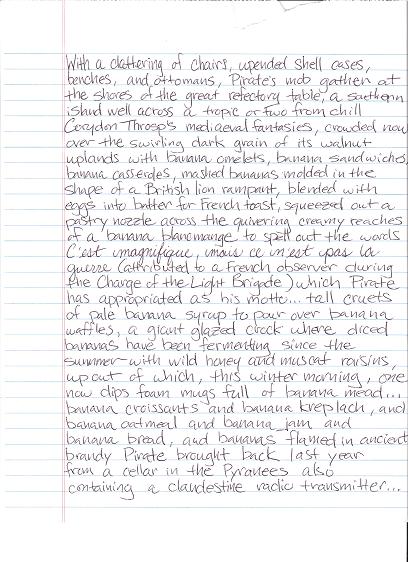 With a clattering of chairs, upended shell cases,
benches, and ottomans, Pirate's mob gather at
the shores of the great refectory table, a southern
island well across a tropic or two from chill
Corydon Throsp's mediaeval fantasies, crowded now
over the swirling dark grain of its walnut
uplands with banana omelets, banana sandwiches,
banana casseroles, mashed bananas molded in the
shape of a British lion rampant, blended with
eggs into batter for French toast, squeezed out a
pastry nozzle across the quivering creamy reaches
of a banana blancmange to spell out the words
C'est magnifique, mais ce n'est pas la
guerre (attributed to a French observer during
the Charge of the Light Brigade) which Pirate
has appropriated as his motto... tall cruets
of pale banana syrup to pour over banana
waffles, a giant glazed crock where diced
bananas have been fermenting since the
summer with wild honey and muscat raisins,
up out of which, this winter morning, one
now dips foam mugs full of banana mead...
banana croissants and banana kreplach, and
banana oatmeal and banana jam and
banana bread, and bananas flamed in ancient
brandy Pirate brought back last year
from a cellar in the Pyranees also
containing a clandestine radio transmitter...